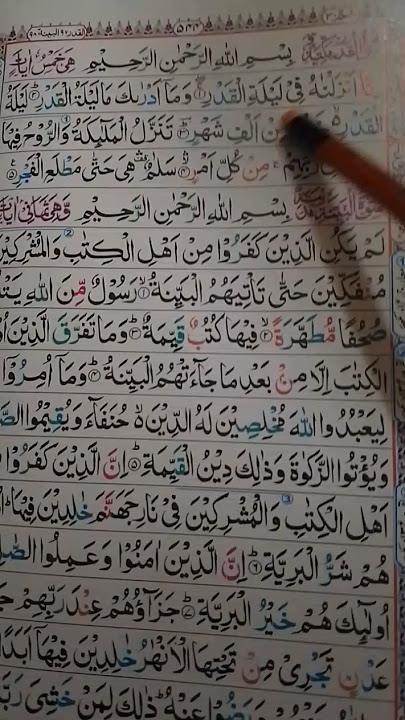 القدر ٩٧ البينة ٩٨
بِسْمِ اللهِ الرَّحْمٰنِ الرَّحِيْمِ هِیَ خَمْسُ اٰيَاتٍ
اَنْزَلْنٰهُ فِیْ لَيْلَةِ الْقَدْرِ ۝١ وَمَاۤ اَدْرٰىكَ مَا لَيْلَةُ الْقَدْرِ ۝٢ لَيْلَةُ
الْقَدْرِ اَلْفِ شَهْرٍ ۝٣ تَنَزَّلُ الْمَلٰٓئِكَةُ وَالرُّوْحُ فِيْهَا
مِنْ كُلِّ اَمْرٍ ۝٤ سَلٰمٌ هِیَ حَتّٰى مَطْلَعِ الْفَجْرِ ۝٥
بِسْمِ اللهِ الرَّحْمٰنِ الرَّحِيْمِ وَهِیَ ثَمَانِی
لَمْ يَكُنِ الَّذِيْنَ كَفَرُوْا مِنْ اَهْلِ الْكِتٰبِ وَالْمُشْرِكِيْنَ
مُنْفَكِّيْنَ حَتّٰى تَاْتِيَهُمُ الْبَيِّنَةُ ۝١ رَسُوْلٌ مِّنَ اللهِ
صُحُفًا مُّطَهَّرَةً ۝٢ فِيْهَا كُتُبٌ قَيِّمَةٌ ۝٣ وَمَا تَفَرَّقَ الَّذِيْنَ
الْكِتٰبَ اِلَّا مِنْۢ بَعْدِ مَا جَآءَتْهُمُ الْبَيِّنَةُ ۝٤ وَمَاۤ اُمِرُوْۤا
لِيَعْبُدُوا اللهَ مُخْلِصِيْنَ لَهُ الدِّيْنَ ۙ حُنَفَآءَ وَيُقِيْمُوا
وَيُؤْتُوا الزَّكٰوةَ وَذٰلِكَ دِيْنُ الْقَيِّمَةِ ۝٥ اِنَّ الَّذِيْنَ كَفَرُوْا
اَهْلِ الْكِتٰبِ وَالْمُشْرِكِيْنَ فِیْ نَارِ جَهَنَّمَ خٰلِدِيْنَ فِيْهَا
هُمْ شَرُّ الْبَرِيَّةِ ۝٦ اِنَّ الَّذِيْنَ اٰمَنُوْا وَعَمِلُوا
اُولٰٓئِكَ هُمْ خَيْرُ الْبَرِيَّةِ ۝٧ جَزَآؤُهُمْ عِنْدَ رَبِّهِمْ
عَدْنٍ تَجْرِیْ مِنْ تَحْتِهَا الْاَنْهٰرُ خٰلِدِيْنَ فِيْهَاۤ اَبَدًا
عَنْهُ ذٰلِكَ لِمَنْ خَشِیَ